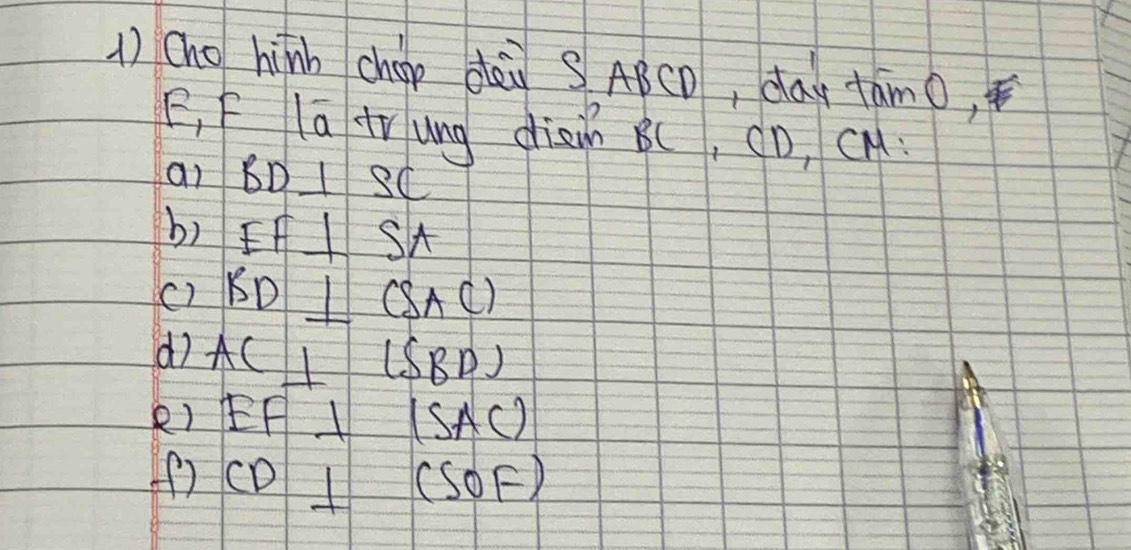 1) Cho hình chóp đều S.ABCD, đáy tâm O,
E, F là trung điểm BC, CD, CM:
a) BD ⊥ SC
b) EF ⊥ SA
c) BD ⊥ (SAC)
d) AC ⊥ (SBD)
e) EF ⊥ (SAC)
f) CD ⊥ (SOF)